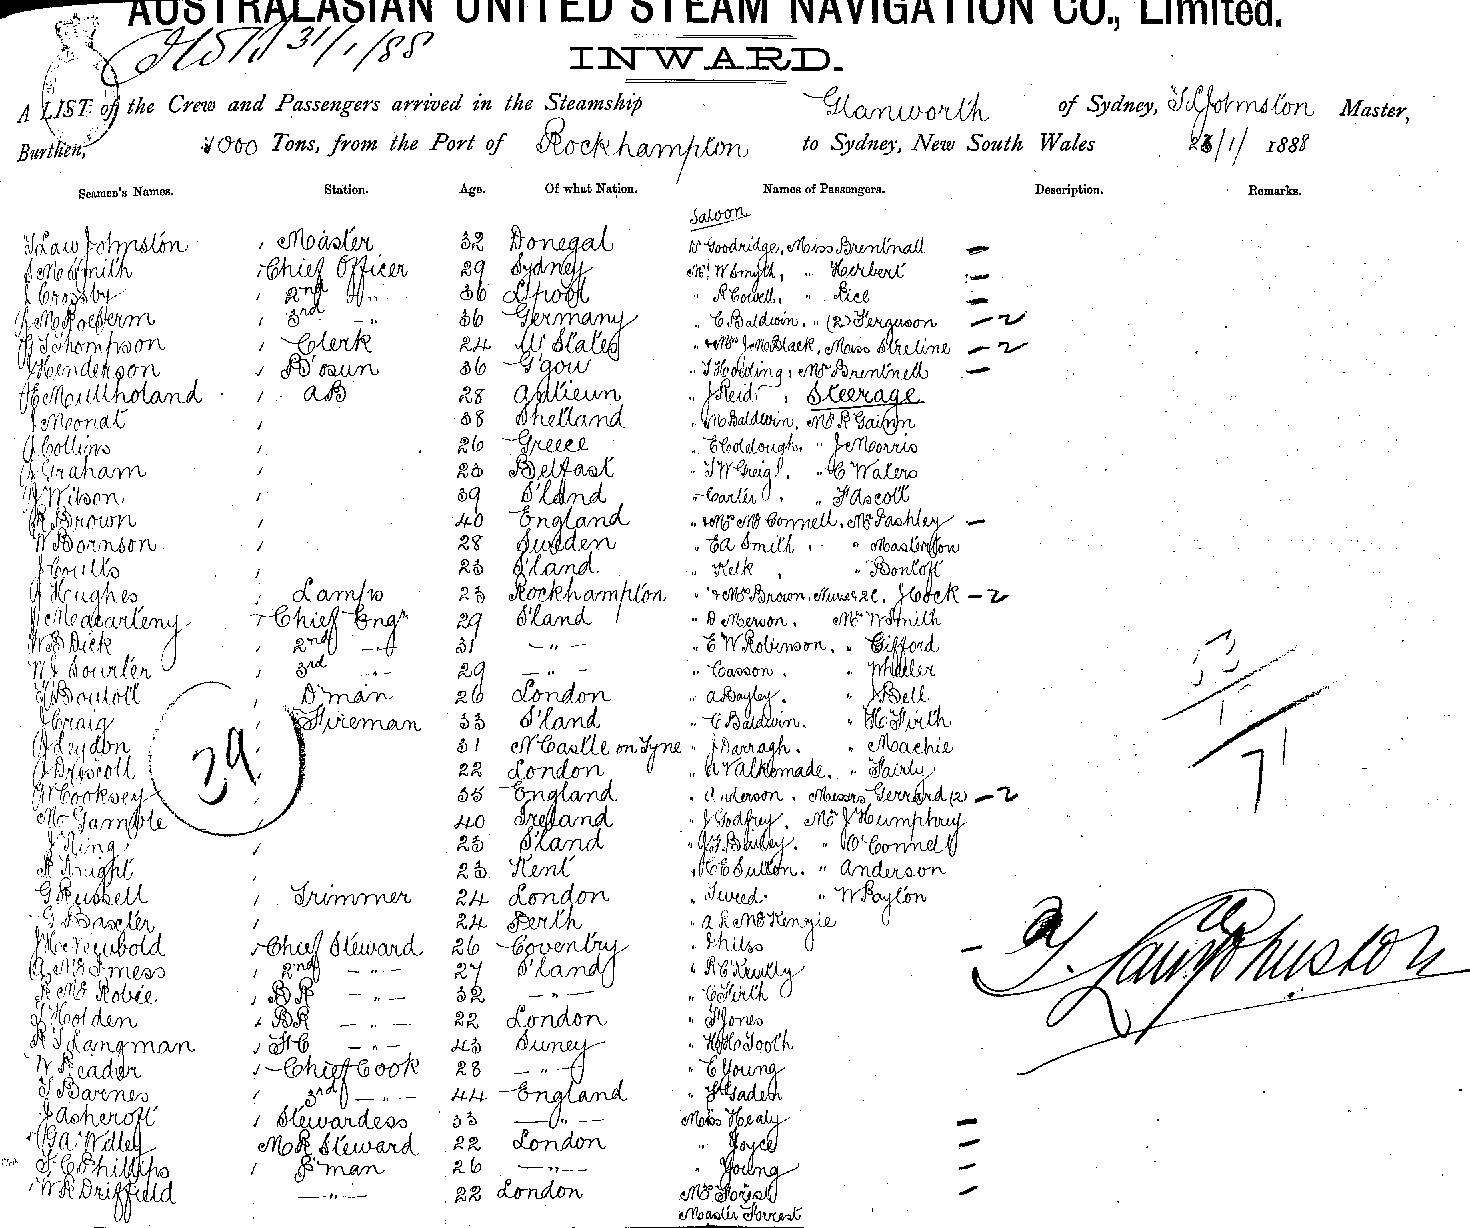 AUSTRALASIAN UNITED STEAM NAVIGATION CO., Limited.
31/1/88
INWARD.
A LIST of the Crew and Passengers arrived in the Steamship Glanworth of Sydney, T L Johnston Master,
Burthen, 1000 Tons, from the Port of Rockhampton to Sydney, New South Wales 26/1/ 1888
Seamen's Names. Station. Age. Of what Nation. Names of Passengers. Description. Remarks.
Saloon
T Law Johnston Master 32 Donegal W Goodridge, Miss Brentnall —
J McSmith Chief Officer 29 Sydney Mr W Smyth, " Herbert —
J Crosby 2nd " 36 L'pool " R Cowell, " Rice —
3rd " 36 Germany " C Baldwin. " (2) Ferguson — 2
G Thompson Clerk 24 U States " & Mrs J McBlack, Miss Streline — 2
J Henderson B'osun 36 G'gow " T Holding, Mrs Brentnell —
H E Mullholand AB 28 " J Reid, Steerage
J Monat 38 Shetland " M Baldwin, Mr R Gainn
J Collins 26 Greece " E Coldough, " J Morris
J Graham 23 Belfast " T W Greig, " C Waters
J Wilson 39 S'land " Carter, " F Ascott
R Brown 40 England " & Mrs McConnell, Mr Pashley —
W Bornson 28 Sweden " E A Smith " Masterton
J Coutts 23 S'land " Kelk, " Bontoft
J Hughes Lamps 23 Rockhampton " & Mrs Brown, Nurse & C. J Hock — 2
J Macarteny Chief Engr 29 S'land " D Merson. Mr W Smith
W S Dick 2nd " 31 — " — " E W Robinson. " Gifford
W J Sourler 3rd " 29 — " — " Casson. " Wheeler
F Boutoll D'man 26 London " A Bayley. " J Bell
J Craig Fireman 33 S'land " C Baldwin. " H Firth
J Leydon 31 N Castle on Tyne " J Darragh. " Machie
J Driscoll 22 London " A Valkemade. " Fairly
W Cooksey 35 England " Anderson. Messrs Gerrard (2 — 2
Mc Gamble 40 Ireland " J Godfrey. Mr J Humphrey
J King 23 S'land " J F Bailey. " O'Connell
R Knight 23 Kent " C E Sutton. " Anderson
G Russell Trimmer 24 London " Tweed. " W Paylon
G Baxter 24 Perth " A L McKenzie
J H Newbold Chief Steward 26 Coventry " Philss —
A McInness 2nd — " — 27 S'land " R C Keutly
R McRobie BR — " — 32 — " — " C Firth
J Holden BR — " — 22 London " T Jones
R T Langman FC — " — 43 Surrey " H H Tooth
W Reader Chief Cook 28 — " — " C Young
T Barnes 3rd — " — 44 England " F Gaden
J Ashcroft Stewardess 33 — " — Miss Healy —
G A Willey M R Steward 22 London " Joyce —
T C Phillips P'man 26 — " — " Young —
W R Driffield — " — 22 London Mrs Forest —
Master Forrest
39
53
71
T. Law Johnston